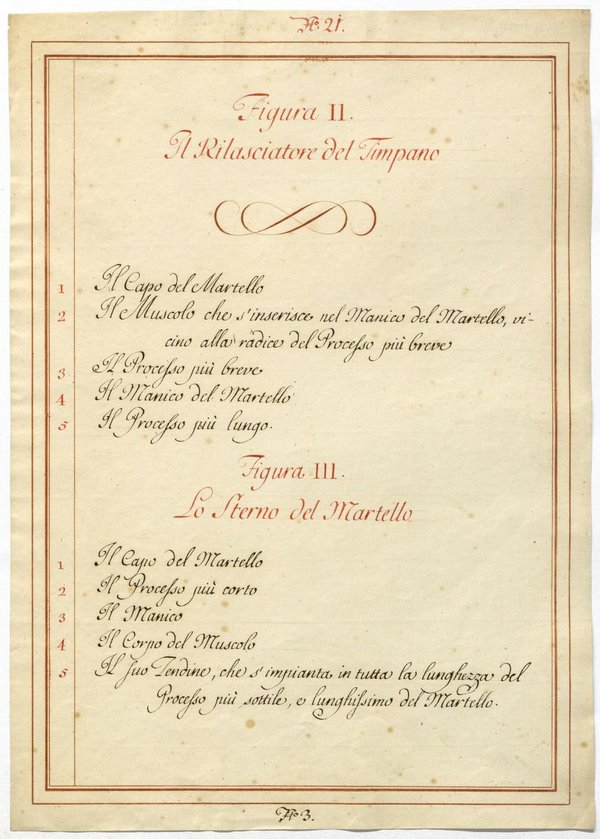 No. 21.
Figura II.
Il Rilasciatore del Timpano
1 Il Capo del Martello
2 Il Muscolo che s'inserisce nel Manico del Martello, vi-
cino alla radice del Processo più breve
3 Il Processo più breve
4 Il Manico del Martello
5 Il Processo più lungo.
Figura III.
Lo Sterno del Martello
1 Il Capo del Martello
2 Il Processo più corto
3 Il Manico
4 Il Corpo del Muscolo
5 Il suo Tendine, che s'impianta in tutta la lunghezza del
Processo più sottile, e lunghissimo del Martello.
No. 3.